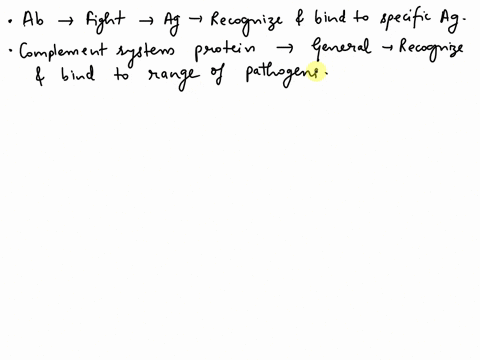 • Ab → fight → Ag → Recognize & bind to specific Ag.
• Complement systems protein → General → Recognize
& bind to range of pathogens.